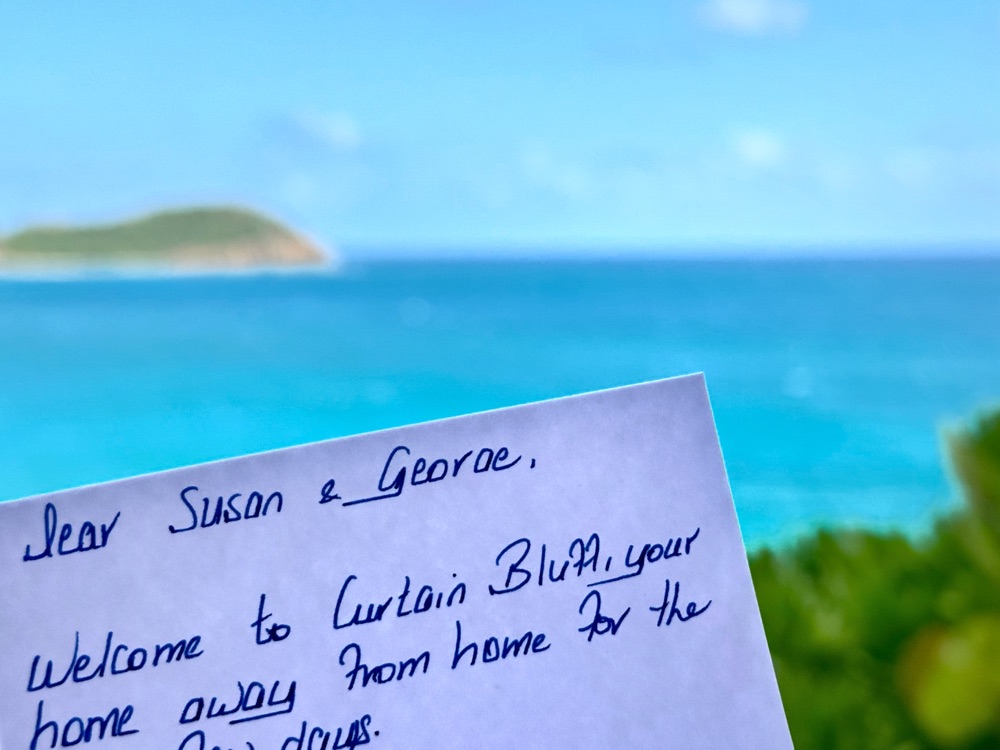 Dear Susan & George,
Welcome to Curtain Bluff, your
home away from home for the
few days.